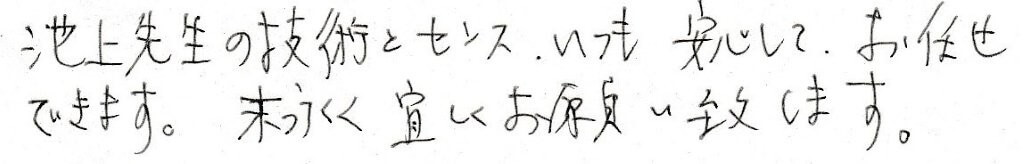 池上先生の技術とセンス、いつも 安心して、お任せ
できます。 末永く 宜しくお願い致します。